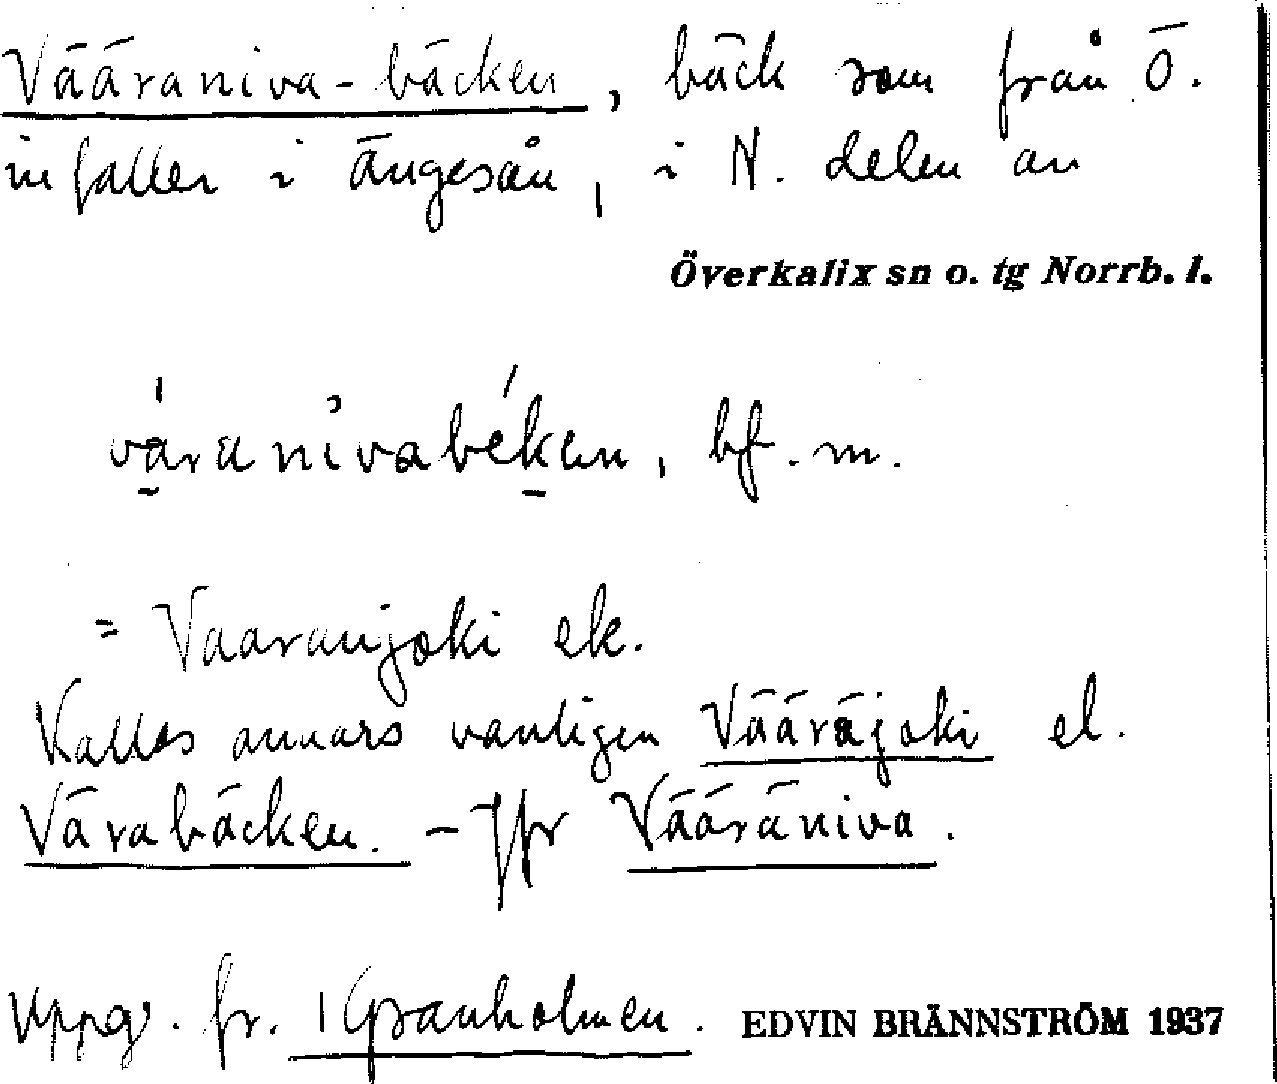 Vääraniva-bäcken, bäck som från Ö.
infaller i Ängesån, i N. delen av
Överkalix sn o. tg Norrb. l.
váranivabéken, bf. m.
= Vaaranjoki ek.
Kallas annars vanligen Vääräjoki el.
Värabäcken. – Jfr Vääräniva.
Uppg. fr. Granholmen. EDVIN BRÄNNSTRÖM 1937